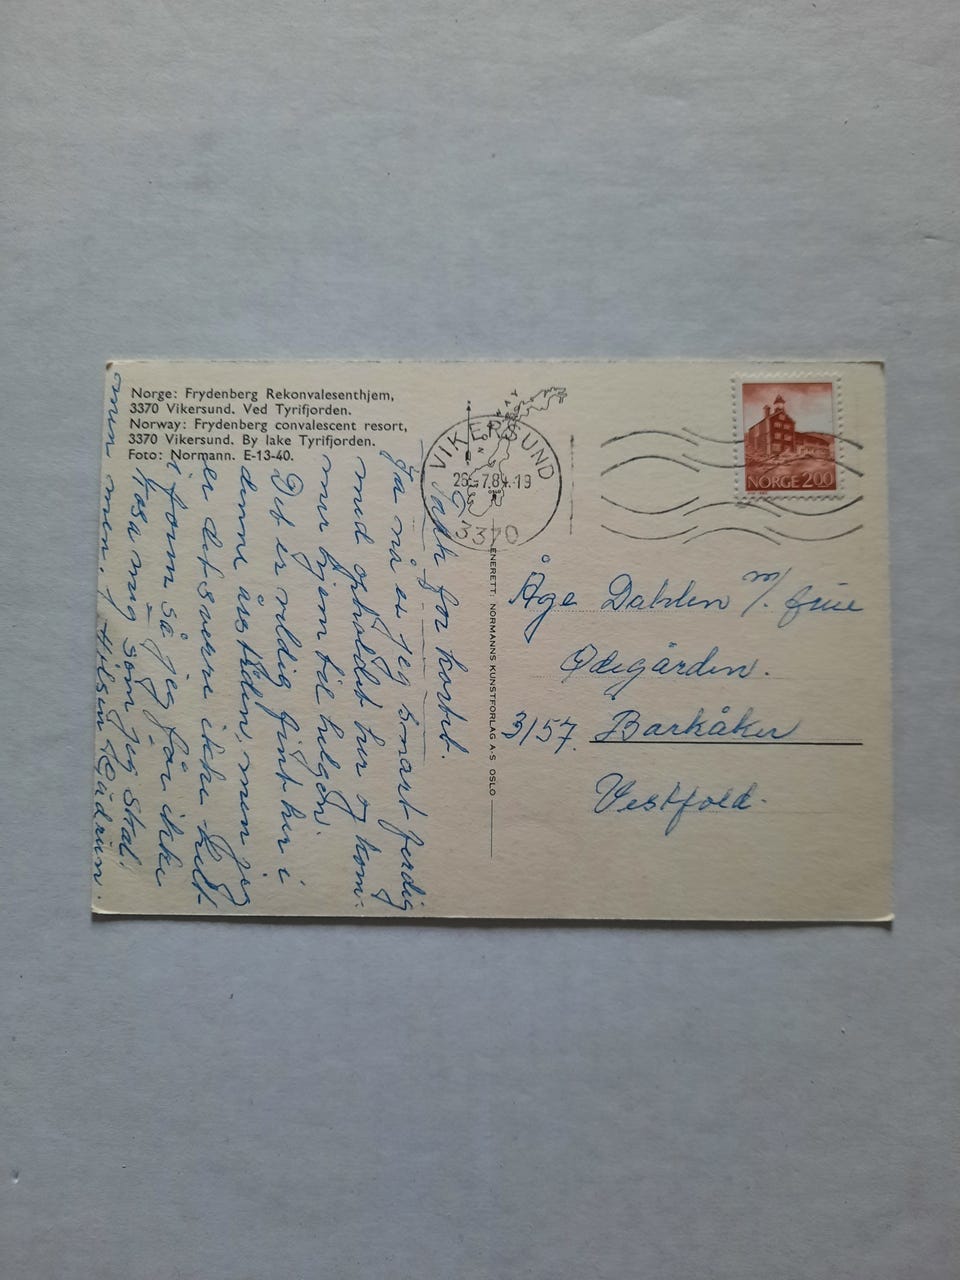 Norge: Frydenberg Rekonvalesenthjem,
3370 Vikersund. Ved Tyrifjorden.
Norway: Frydenberg convalescent resort,
3370 Vikersund. By lake Tyrifjorden.
Foto: Normann. E-13-40.
Takk for kortet.
Ja nå er jeg snart ferdig
med oppholdet her og kom-
mer hjem til helgen.
Det er veldig fint her i
denne årstiden, men jeg
er dessverre ikke helt
i form så jeg får ikke
kosa meg som jeg skal.
men.
Hilsen Gudrun.
ENERETT: NORMANNS KUNSTFORLAG A-S OSLO
NORWAY
OSLO
VIKERSUND
26.-7.84.-19
3370
NORGE 200
Åge Dahlen m/. frue
Ødegården.
3157. Barkåker
Vestfold.